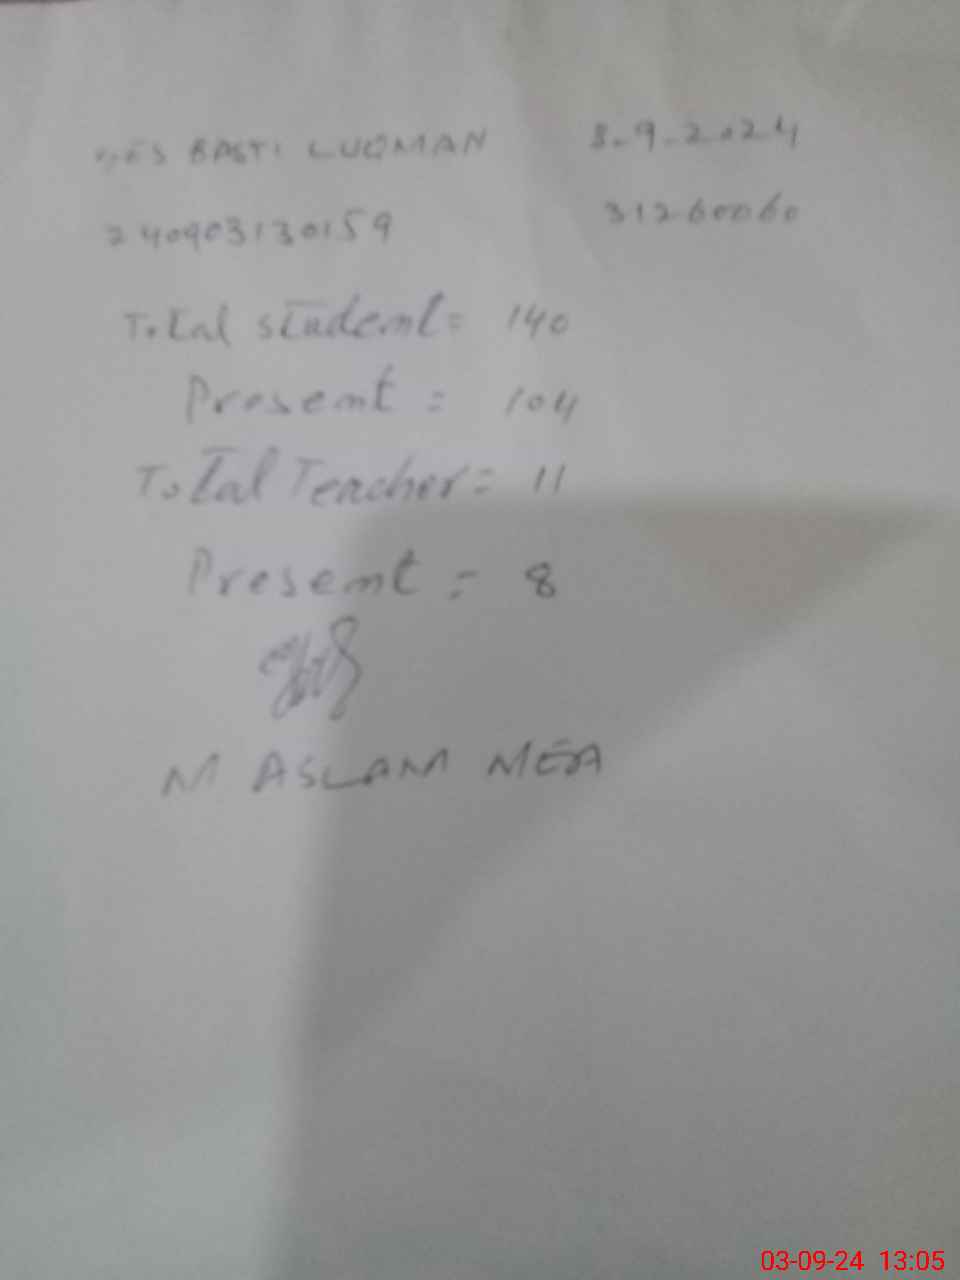 BASTI LUQMAN 3-9-2024
240903130159 31260060
Total student = 140
Present = 104
Total Teacher = 11
Present = 8
M ASLAM MEA
03-09-24 13:05